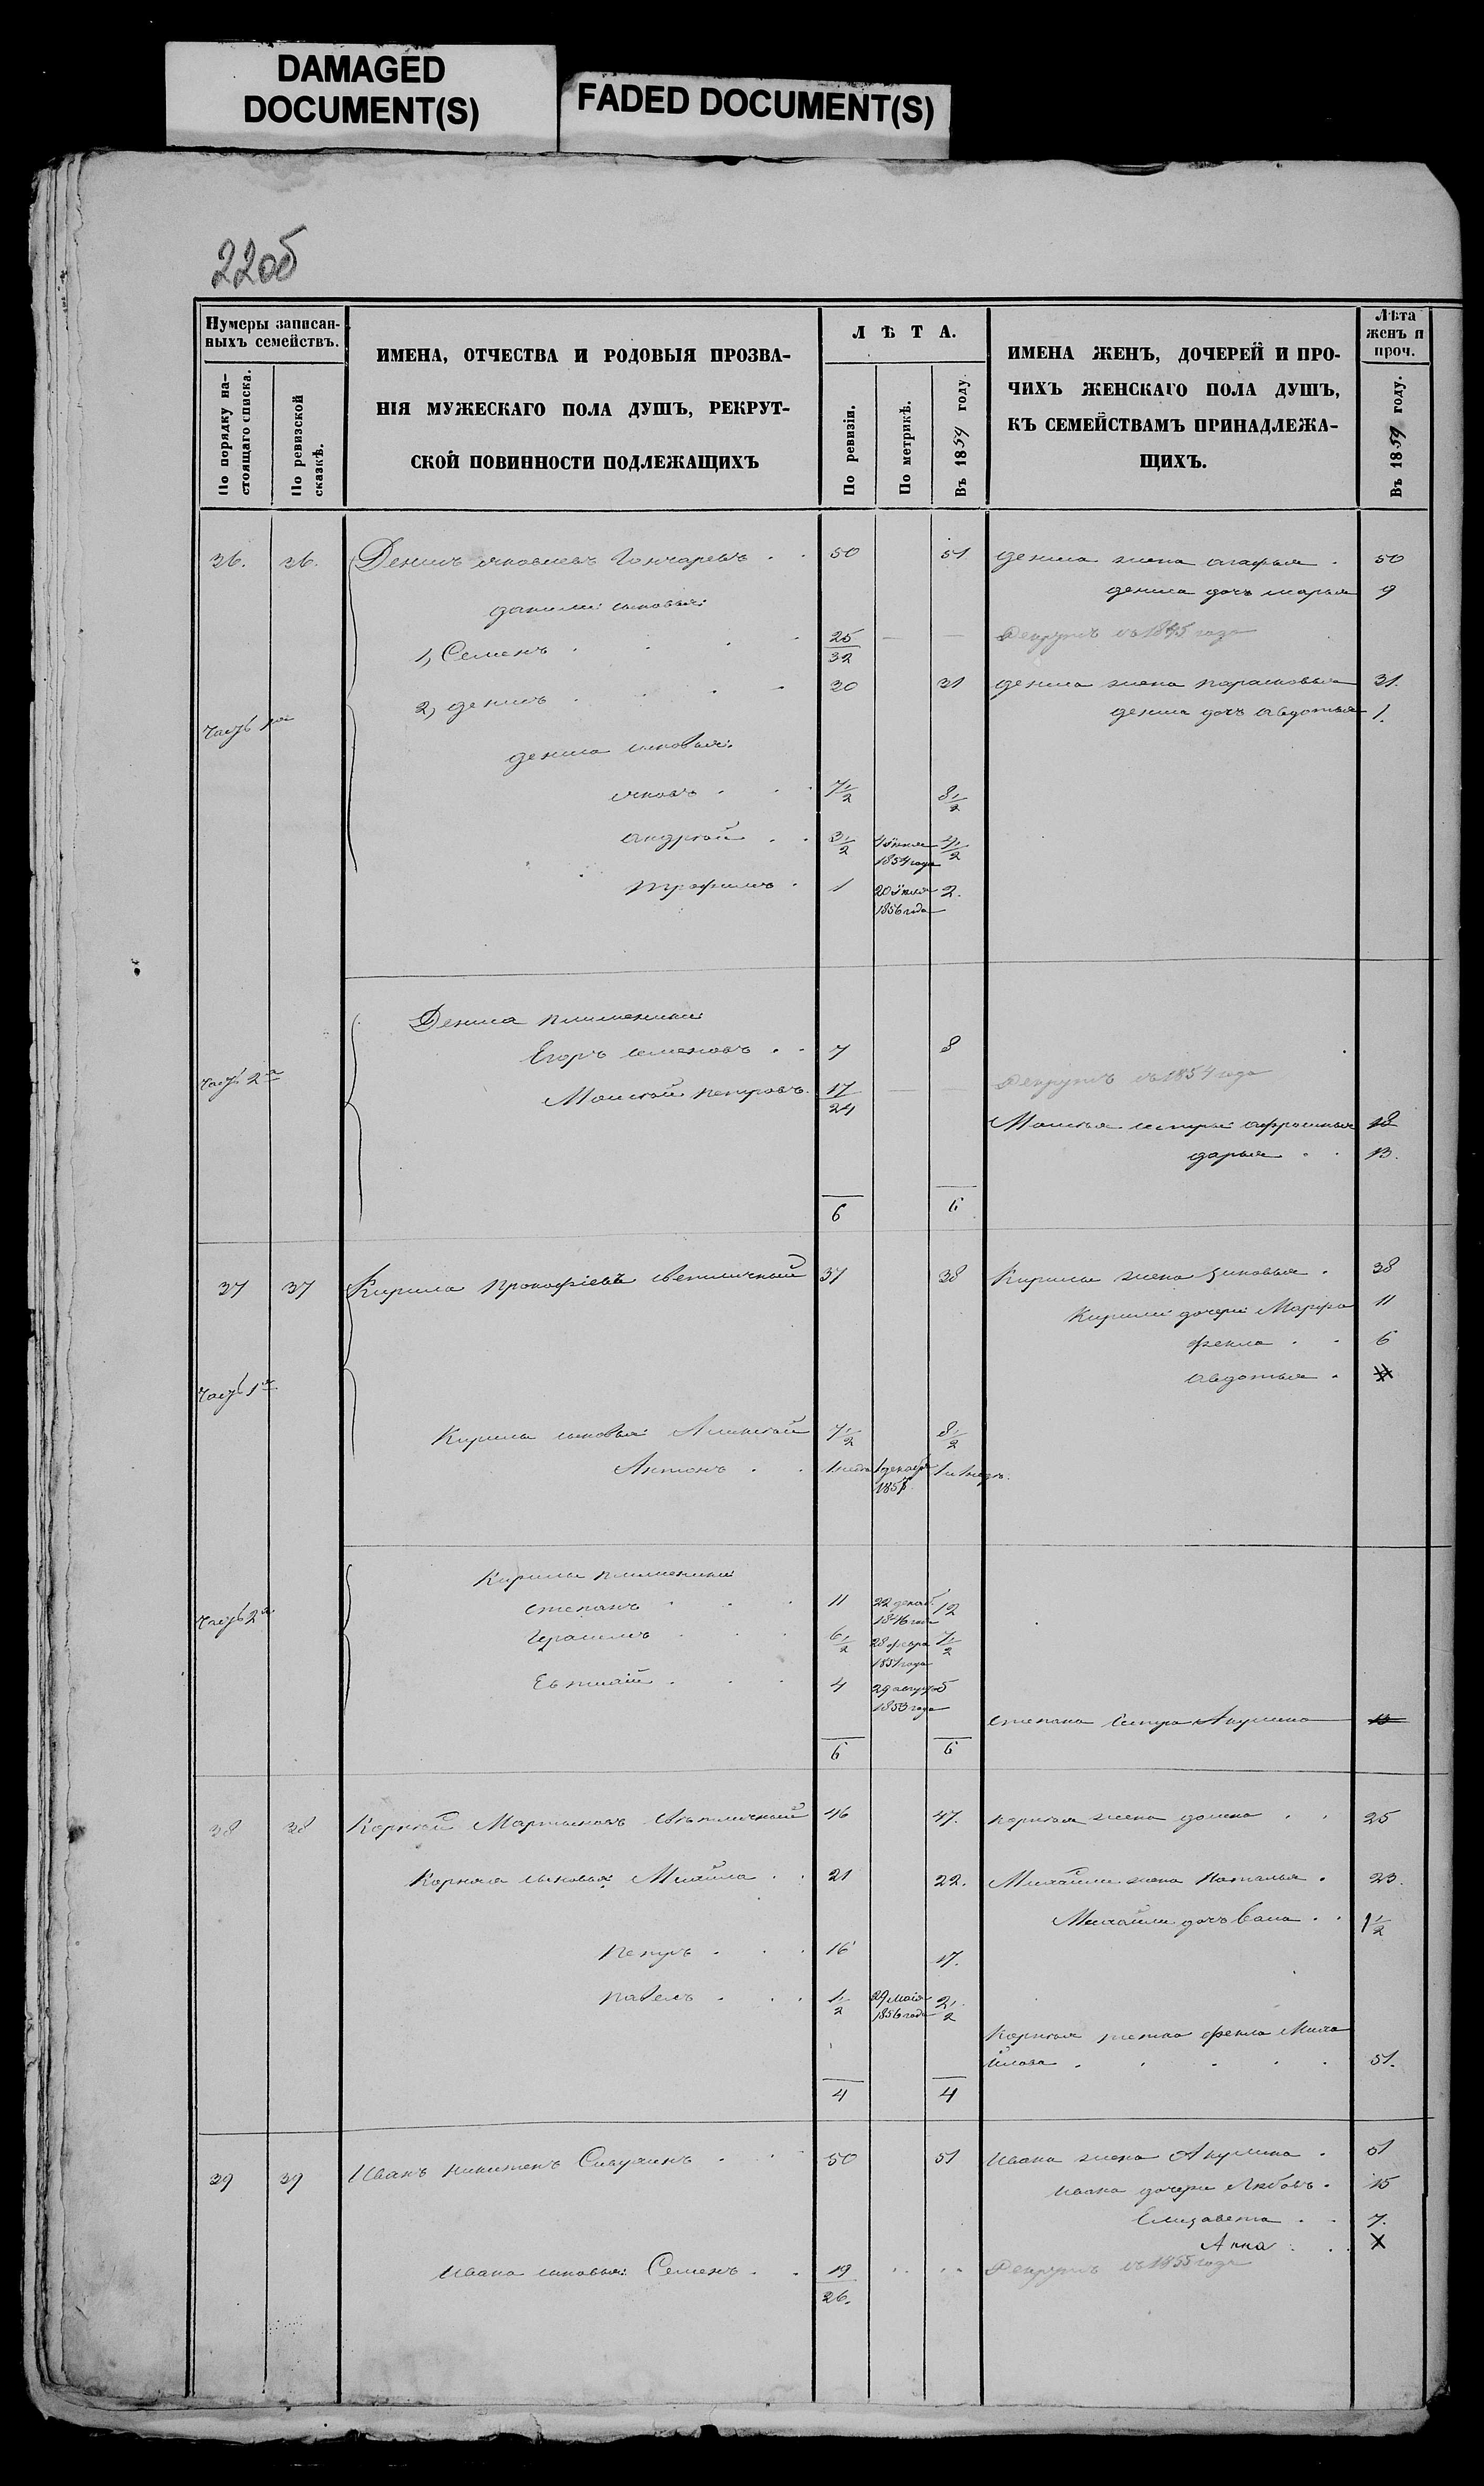 DAMAGED
DOCUMENT(S)
FADED DOCUMENT(S)
22об
Нумеры записан-
ныхъ семействъ.
По порядку на-
стоящаго списка.
По ревизской
сказкѣ.
ИМЕНА, ОТЧЕСТВА И РОДОВЫЯ ПРОЗВА-
НІЯ МУЖЕСКАГО ПОЛА ДУШЪ, РЕКРУТ-
СКОЙ ПОВИННОСТИ ПОДЛЕЖАЩИХЪ
ЛѢТА.
По ревизіи.
По метрикѣ.
Въ 1859 году
ИМЕНА ЖЕНЪ, ДОЧЕРЕЙ И ПРО-
ЧИХЪ ЖЕНСКАГО ПОЛА ДУШЪ,
КЪ СЕМЕЙСТВАМЪ ПРИНАДЛЕЖА-
ЩИХЪ.
Лѣта
женъ и
проч.
Въ 1859 году.
36. 36. Денисъ Яковлевъ Гончаревъ . . 50 51 Дениса жена Агафья . 50
Дениса дочь Марья 9
сыновья:
1, Семенъ . . . . 25/32 — — Рекрутъ въ 1845 года
2, Денисъ . . . . 30 31 Дениса жена Парасковья 31.
Дениса дочь Авдотья 1.
Часть 1я
Дениса сыновья:
Яковъ . . . 7 1/2 8 1/2
Андрей . . 3 1/2 1854 года 4 1/2
Трофимъ . 1 1856 года 2.
Часть 2я
Дениса племеники
Егоръ Семеновъ . . 7 8
Моисей Петровъ. 17/24 — — Рекрутъ въ 1854 года
Моисея сестры Афросинья 18
Дарья . . 13.
6 6
37 37 Кирила Прокофіевъ Светличный 37 38 Кирилы жена Зиновья . 38
Кирилы дочери Марфа 11
Фекла . . 6
Авдотья .
Часть 1я
Кирилы сыновья: Алексей 7 1/2 8 1/2
Антонъ . .
Часть 2я
Кирилы племеники
Степанъ . . . 11 22 декаб. 1846 года 12
Герасимъ . . . 6 1/2 28 февра 1851 года 7 1/2
Евтихій . . . 4 29 августа 1853 года 5
Степана сестра Акулина
6 6
38 38 Корней Мартыновъ Светличный 46 47. Корнея жена Домна . . 25
Корнея сыновья: Михайла . . 21 22. Михайлы жена Наталья . 23.
Михайлы дочь . . 1 1/2
Петръ . . . 16 17.
Павелъ . . . 1 1/2 29 Мая 1856 года 2 1/2
Корнея тетка Фекла Миха
йлова . . . . . 51.
4 4
39 39 Иванъ Никитенъ . . 50 51 Ивана жена Акулина . 51
Ивана дочери Любовь . 15
Елизавета . . 7.
Анна . . .
Ивана сыновья: Семенъ . . 19/26. .. .. Рекрутъ въ 1855 года